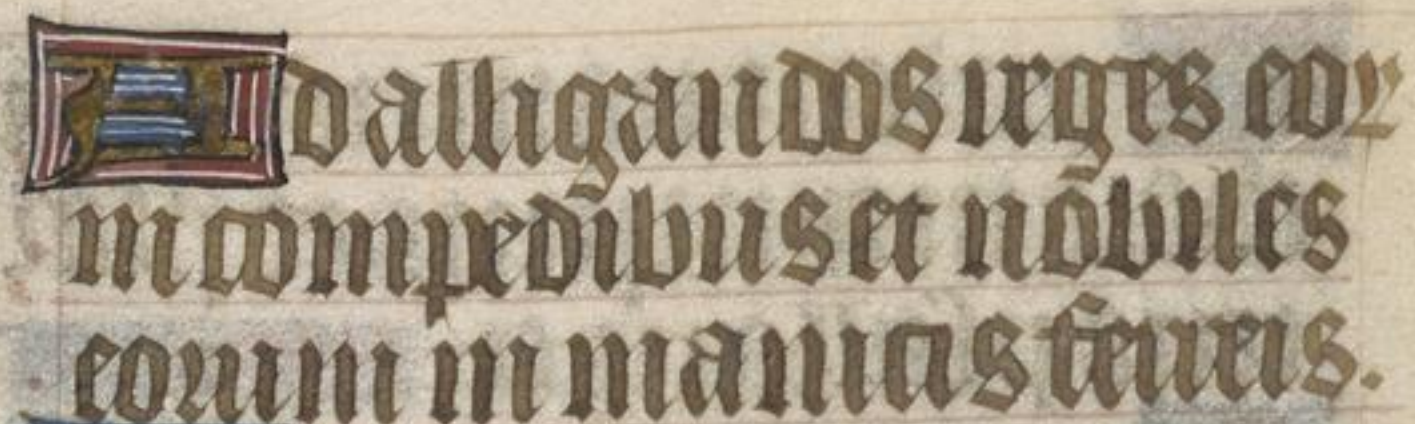 Ad alligandos reges eoꝝ
in compedibus et nobiles
eorum in manicis ferreis.